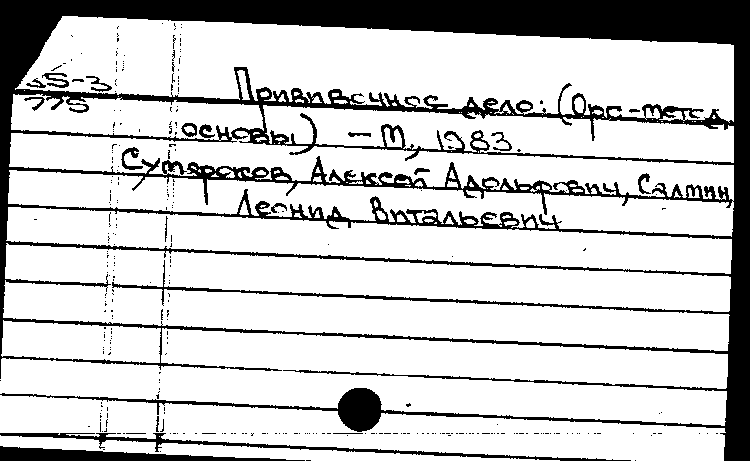 55-3
775
Прививочное дело: (Орг-метод
основы) — М., 1983.
Сумароков, Алексей Адольфович, Салмин,
Леонид Витальевич